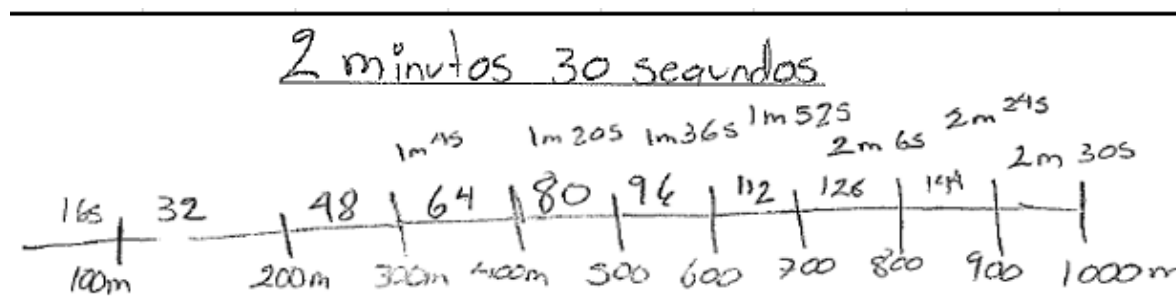 2 minutos 30 segundos
1m 4s 1m 20s 1m 36s 1m 52s 2m 6s 2m 24s 2m 30s
16s 32 48 64 80 96 112 126 144
100m 200m 300m 400m 500 600 700 800 900 1000m